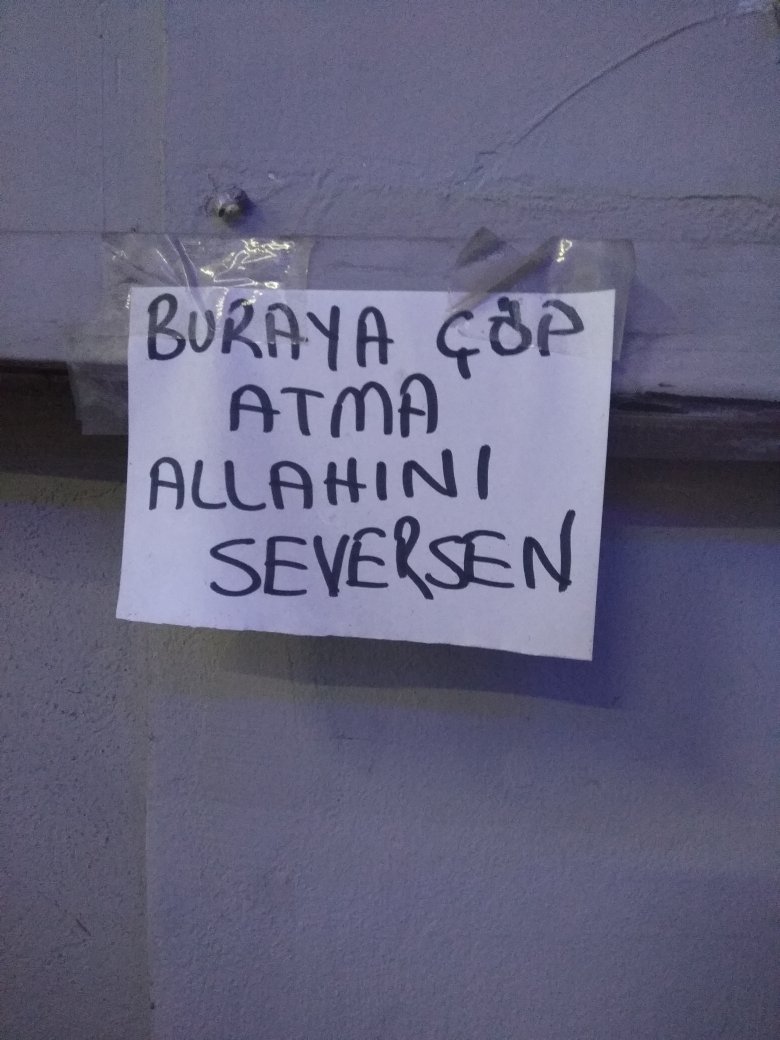 BURAYA ÇÖP
ATMA
ALLAHINI
SEVERSEN